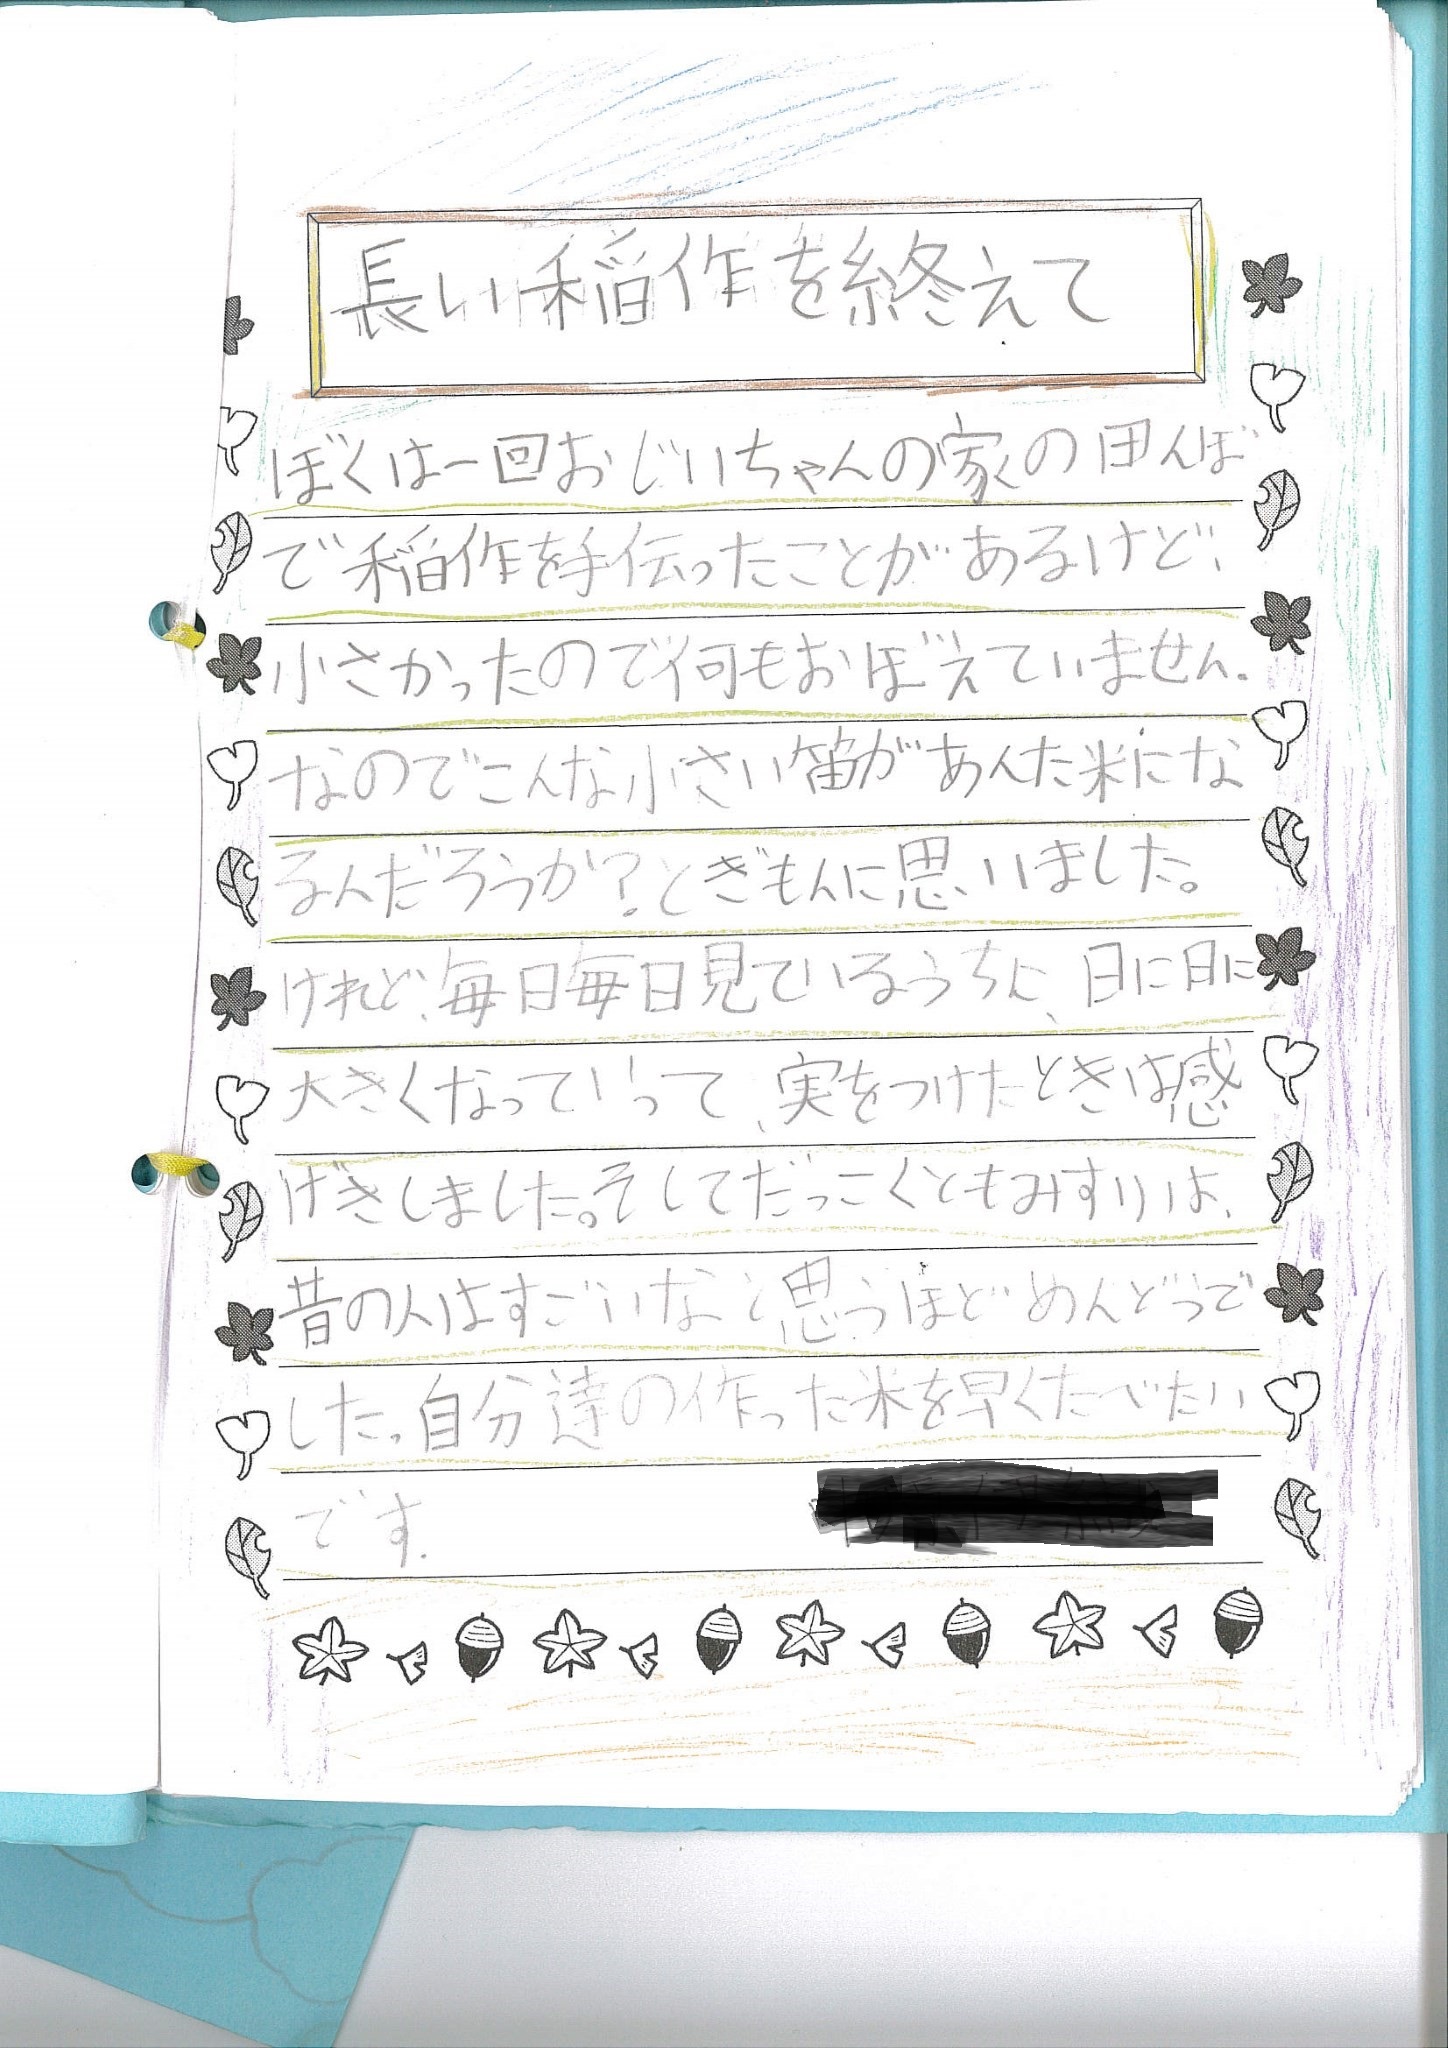 長い稲作を終えて
ぼくは一回おじいちゃんの家の田んぼ
で稲作を手伝ったことがあるけど、
小さかったので何もおぼえていません。
なのでこんな小さい笛があんた米にな
るんだろうか？とぎもんに思いました。
けれど、毎日毎日見ているうちに、日に日に
大きくなっていって、実をつけたときは感
げきしました。そしてだっこくともみすりは、
昔の人はすごいなと思うほどめんどうで
した。自分達の作った米を早くたべたい
です。